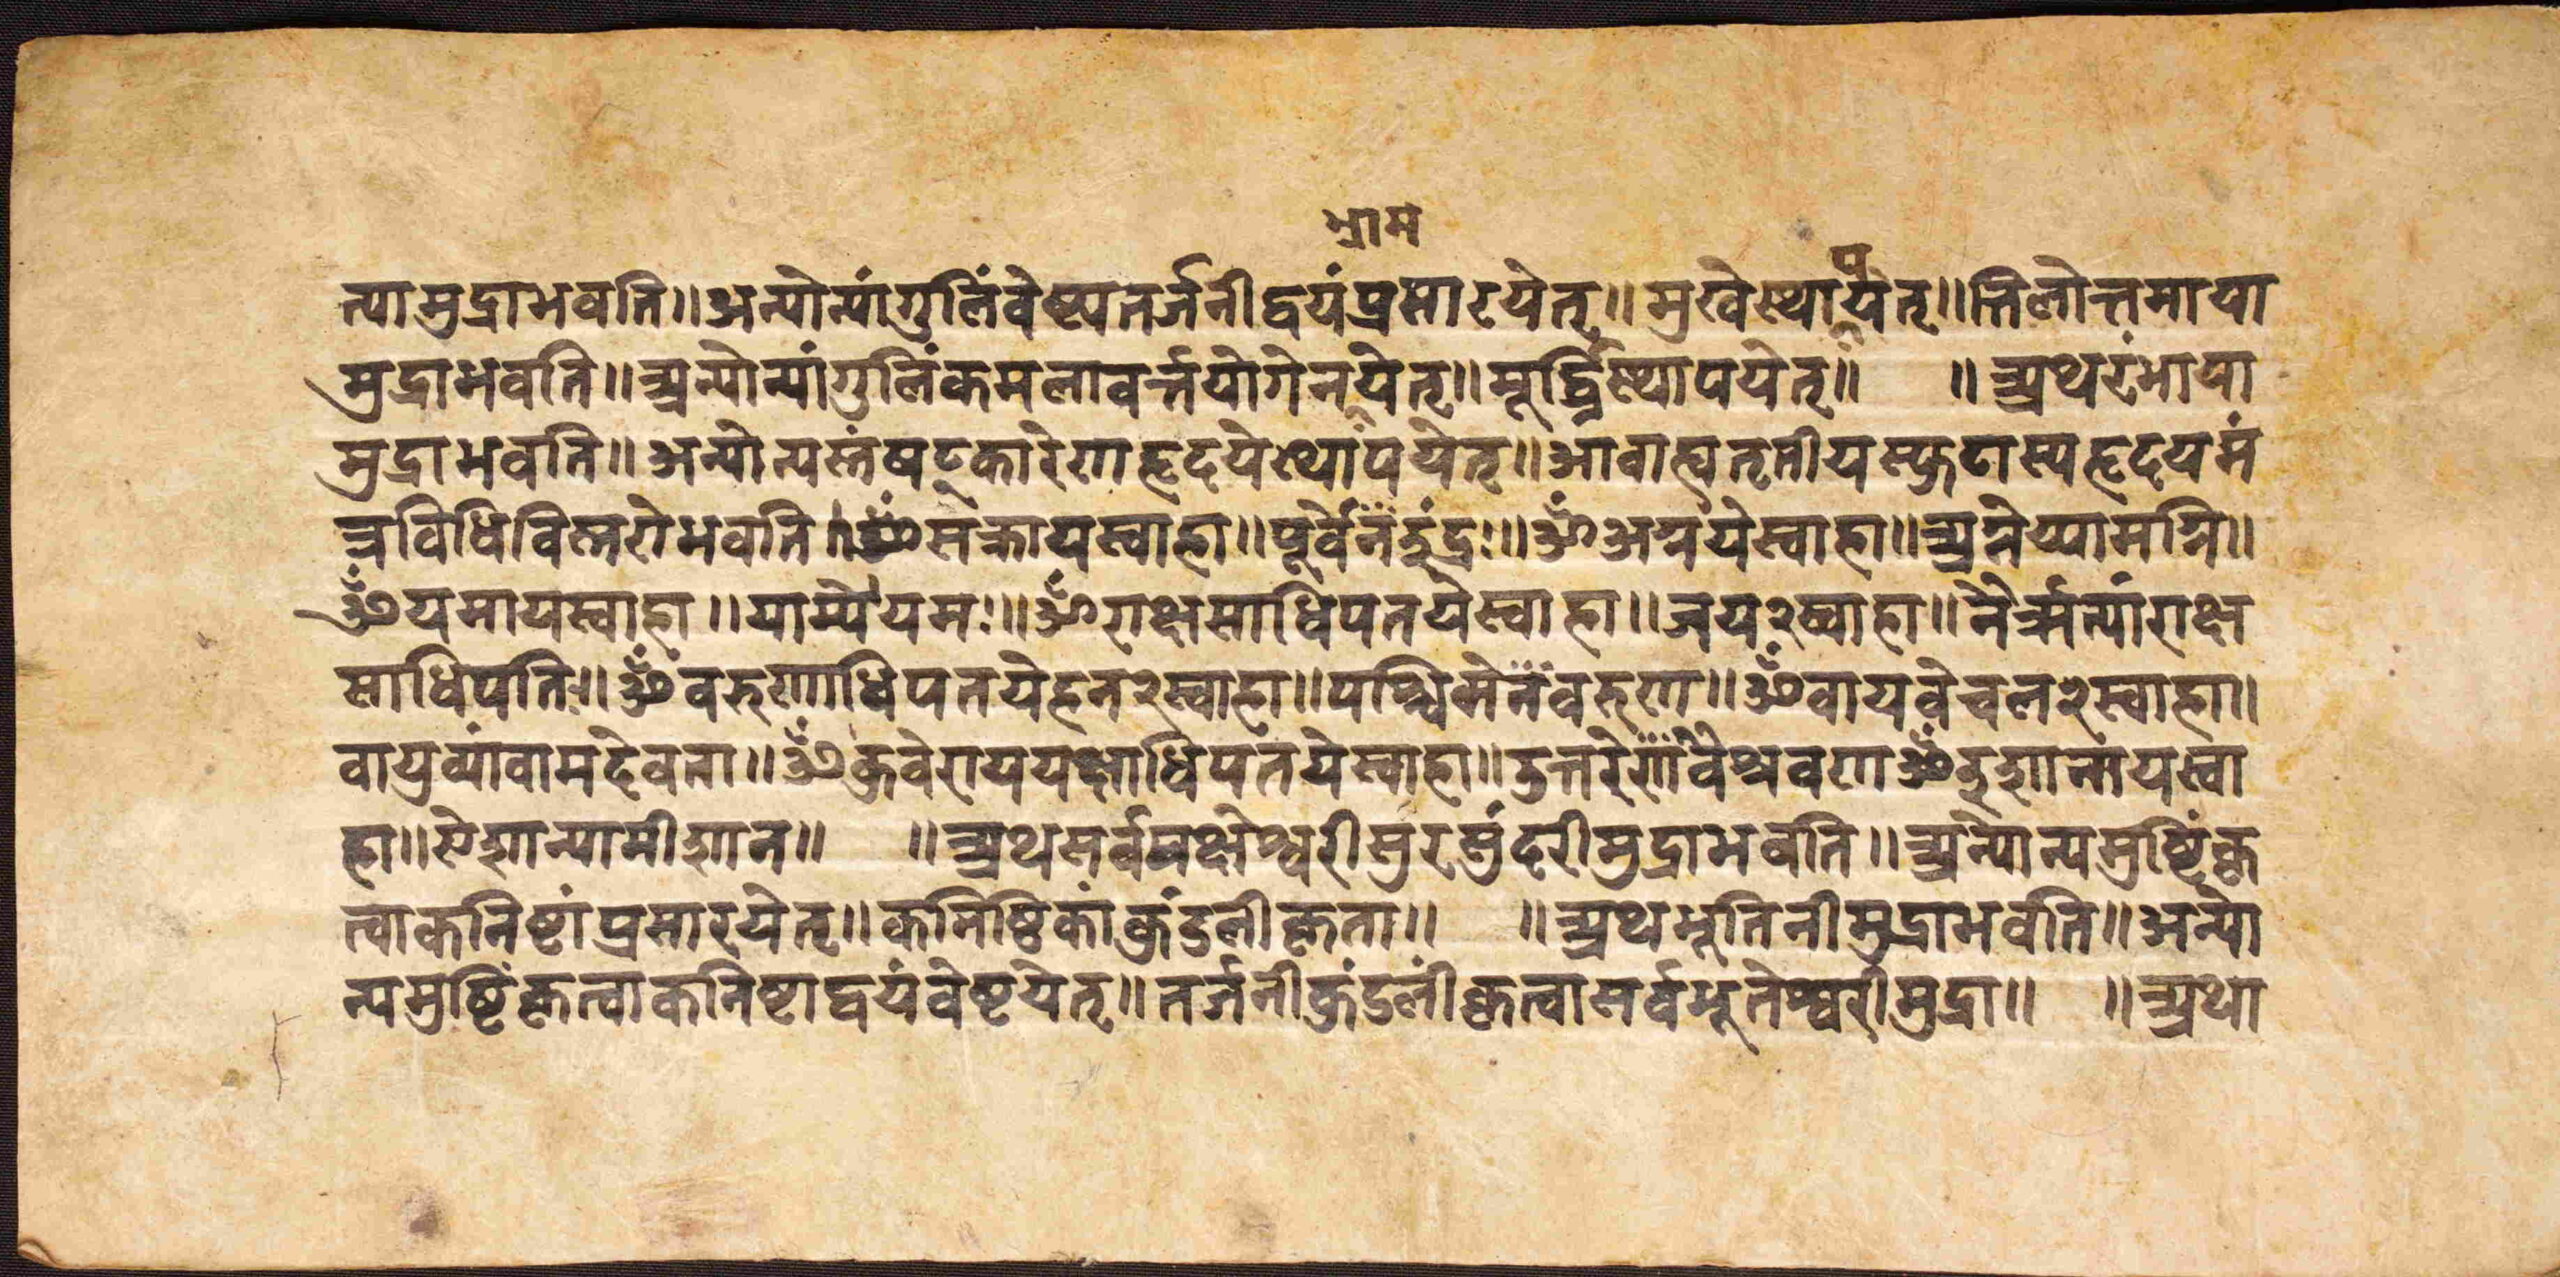 भ्राम
न्यामुद्राभवति॥अन्योन्यांगुलिंवेष्ट्यतर्जनीद्वयंप्रसारयेत्॥मुखेस्थापयेत्॥तिलोत्तमाया
मुद्राभवति॥अन्योन्यांगुलिंकमलावर्त्तयोगेनयेत्॥मूर्द्ध्निस्थापयेत्॥ ॥अथरंभाया
मुद्राभवति॥अन्योन्यस्तंषट्कारेणहृदयेस्थापयेत्॥आवाह्यतृतीयस्फुटास्यहृदयमं
त्रविधिविस्तरोभवति॥ॐसक्रायस्वाहा॥पूर्वेनइंद्रः॥ॐअग्नयेस्वाहा॥अग्नेय्यामग्नि॥
ॐयमायस्वाहा॥याम्येयमः॥ॐराक्षसाधिपतयेस्वाहा॥जय२स्वाहा॥नैर्ऋत्यांराक्ष
साधिपतिः॥ॐवरुणाधिपतयेहन२स्वाहा॥पश्चिमेनवरुण॥ॐवायवेचल२स्वाहा।
वायुव्यांवामदेवता॥ॐकुवेराययक्षाधिपतयेस्वाहा॥उत्तरेणवैश्रवणॐईशानायस्वा
हा॥ऐशान्यामीशान॥ ॥अथसर्वयक्षेश्वरीसुरसुंदरीमुद्राभवति॥अन्योन्यमुष्टिंकृ
त्वाकनिष्टांप्रसारयेत्॥कनिष्ठिकांकुंडलीकृता॥ ॥अथभूतिनीमुद्राभवति॥अन्यो
न्यमुष्टिंकृत्वाकनिष्टाद्वयंवेष्टयेत्॥तर्जनीकुंडलींकृत्वासर्वभूतेश्वरीमुद्रा॥ ॥अथा